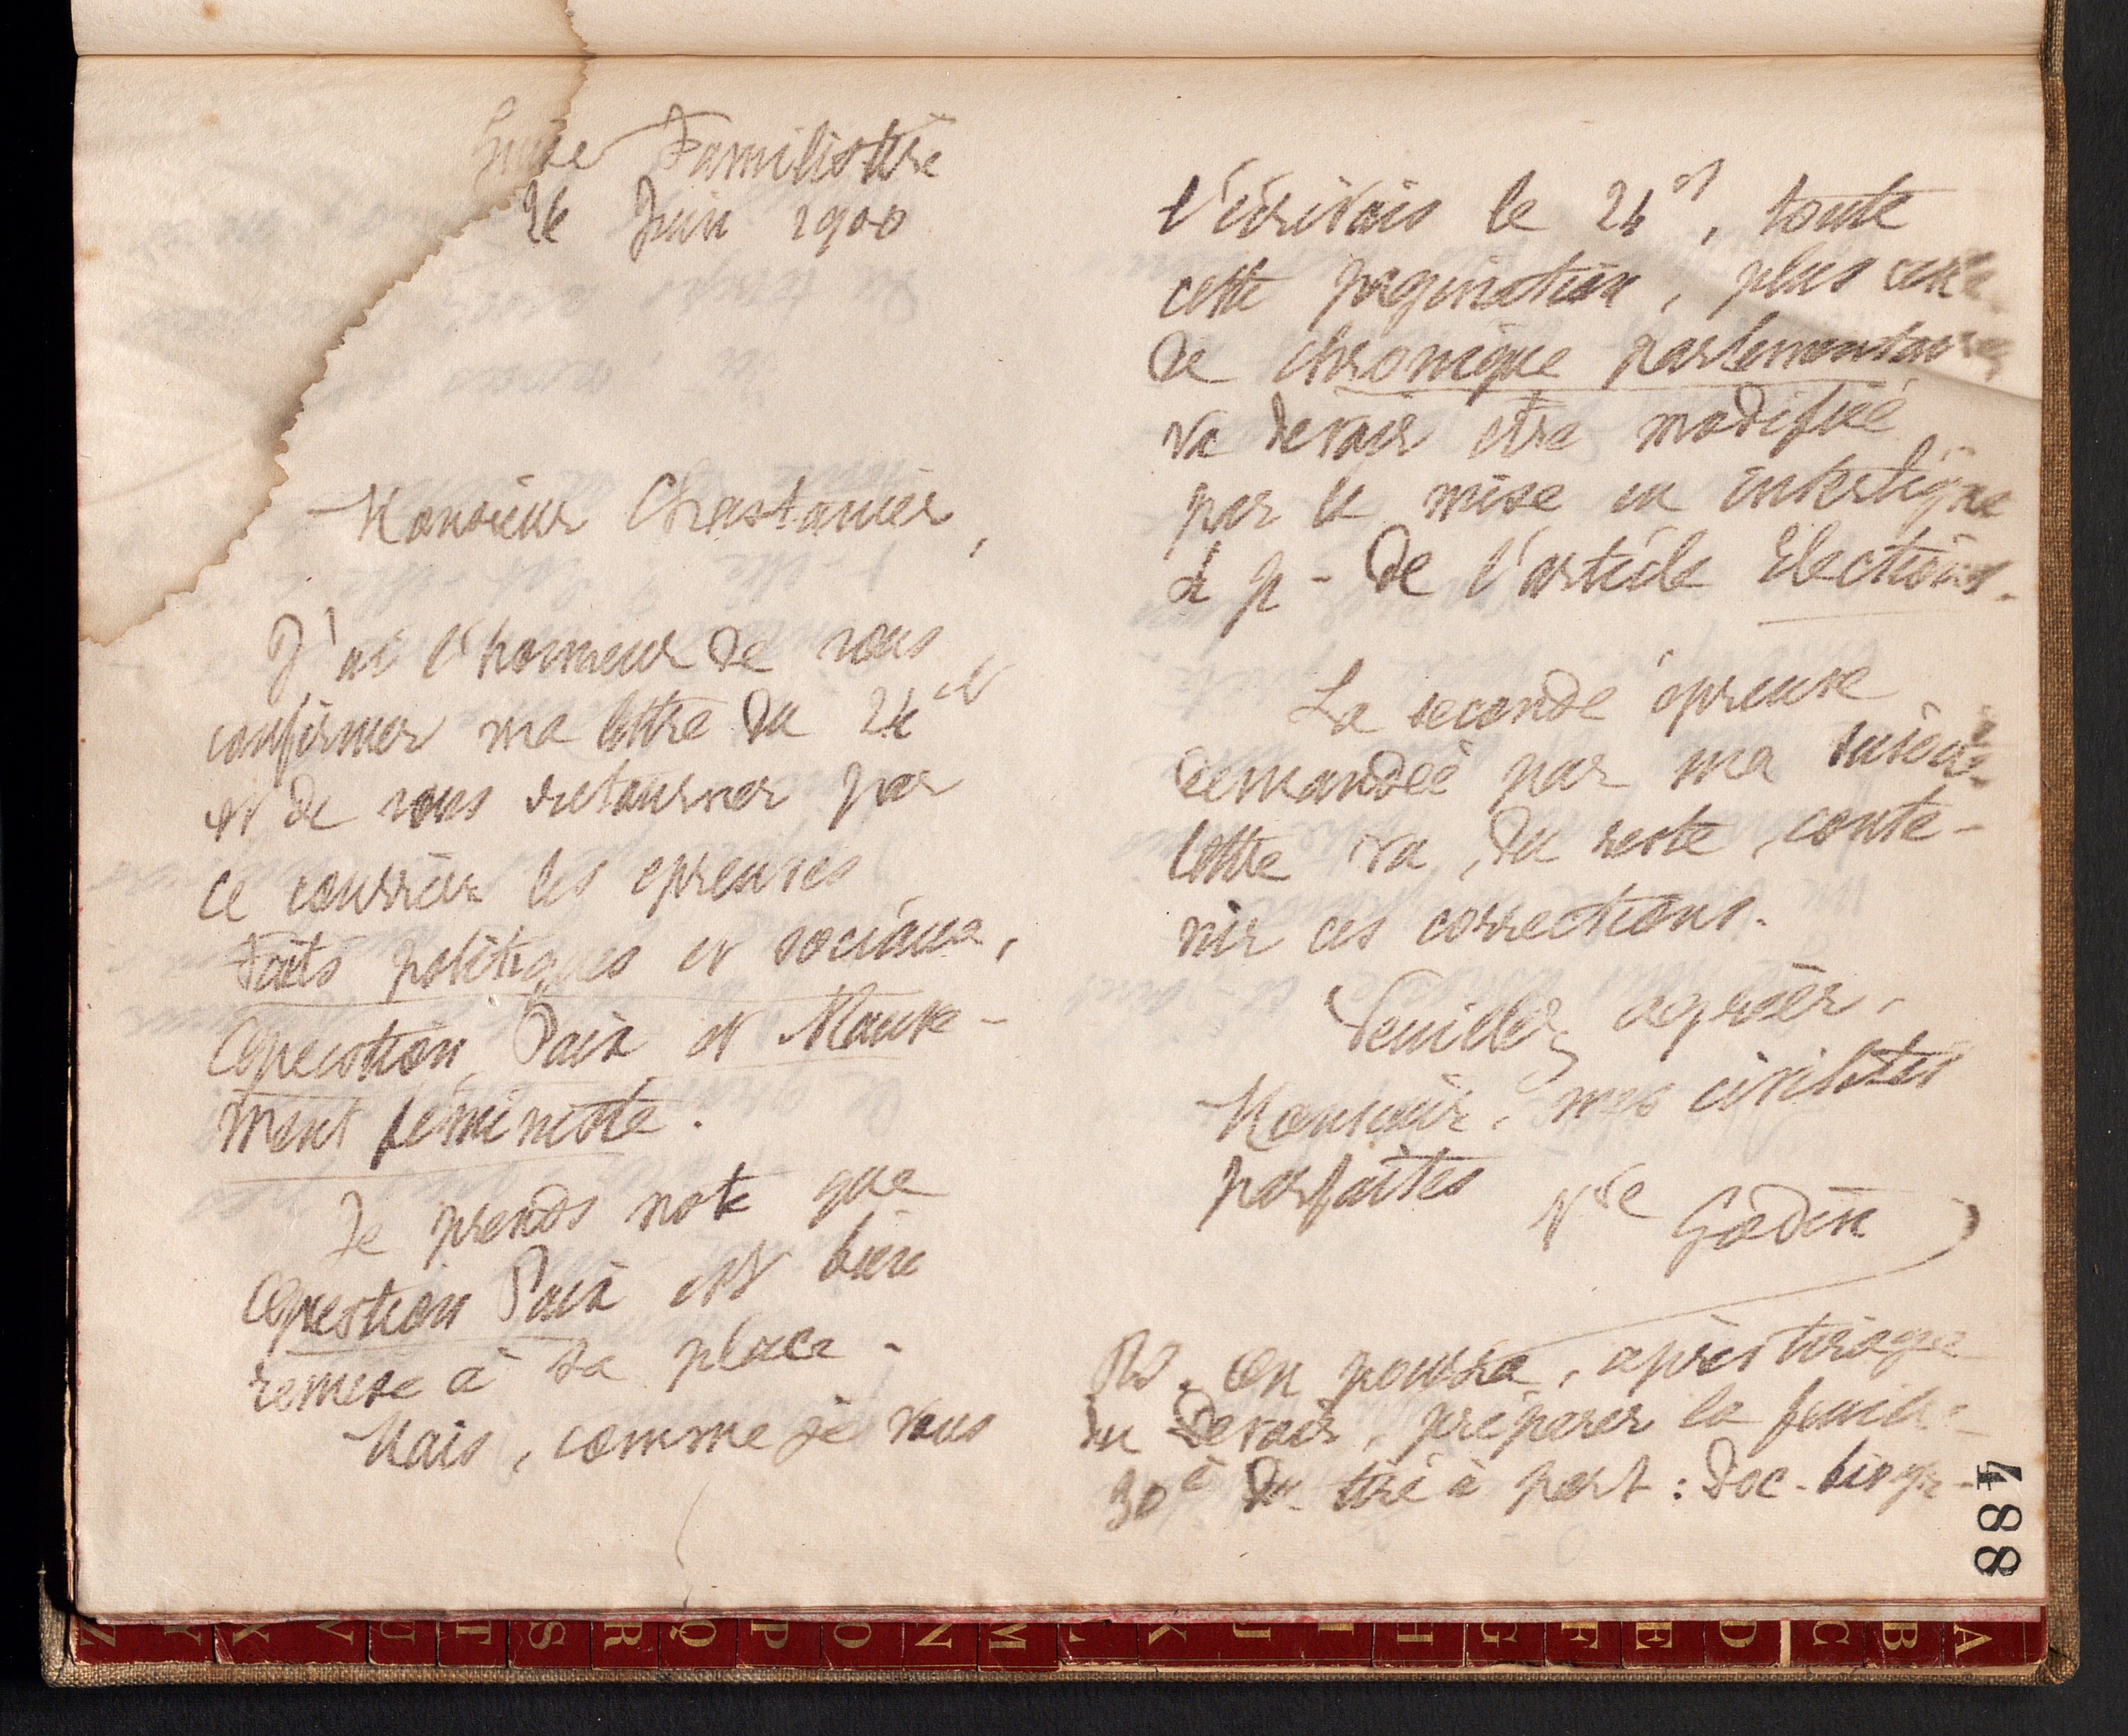 Guise Familistère
26 Juin 1900
Monsieur Chastanier,
J'ai l'honneur de vous
confirmer ma lettre du 24 ct
et de vous retourner par
ce courrier les épreuves
Faits politiques et sociaux,
Question Paix et Mouve-
ment féministe.
Je prends note que
Question Paix est bien
remise à sa place.
Mais, comme je vous
l'écrivais le 24 ct, toute
cette pagination, plus celle
de chronique parlementaire
va devoir être modifiée
par la mise en interligne
d p - de l'article Elections.
La seconde épreuve
demandée par ma susdite
lettre va, du reste, conte-
nir ces corrections.
Veuillez agréer,
Monsieur, mes civilités
parfaites
Vve Godin
Ps. On pourra, après tirage
du Devoir, préparer la feuille
30e du tiré à part : Doc. biogr-
488
Z Y X V U T S R Q P O N M L K J I H G F E D C B A